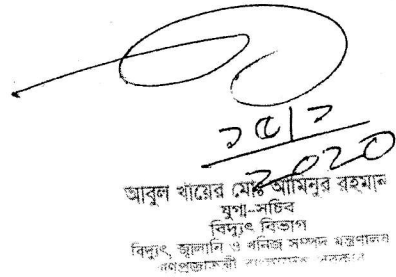 ১৫|১
২০২০
আবুল খায়ের মোঃ আমিনুর রহমান
যুগ্ম-সচিব
বিদ্যুৎ বিভাগ
বিদ্যুৎ, জ্বালানি ও খনিজ সম্পদ মন্ত্রণালয়
গণপ্রজাতন্ত্রী বাংলাদেশ সরকার